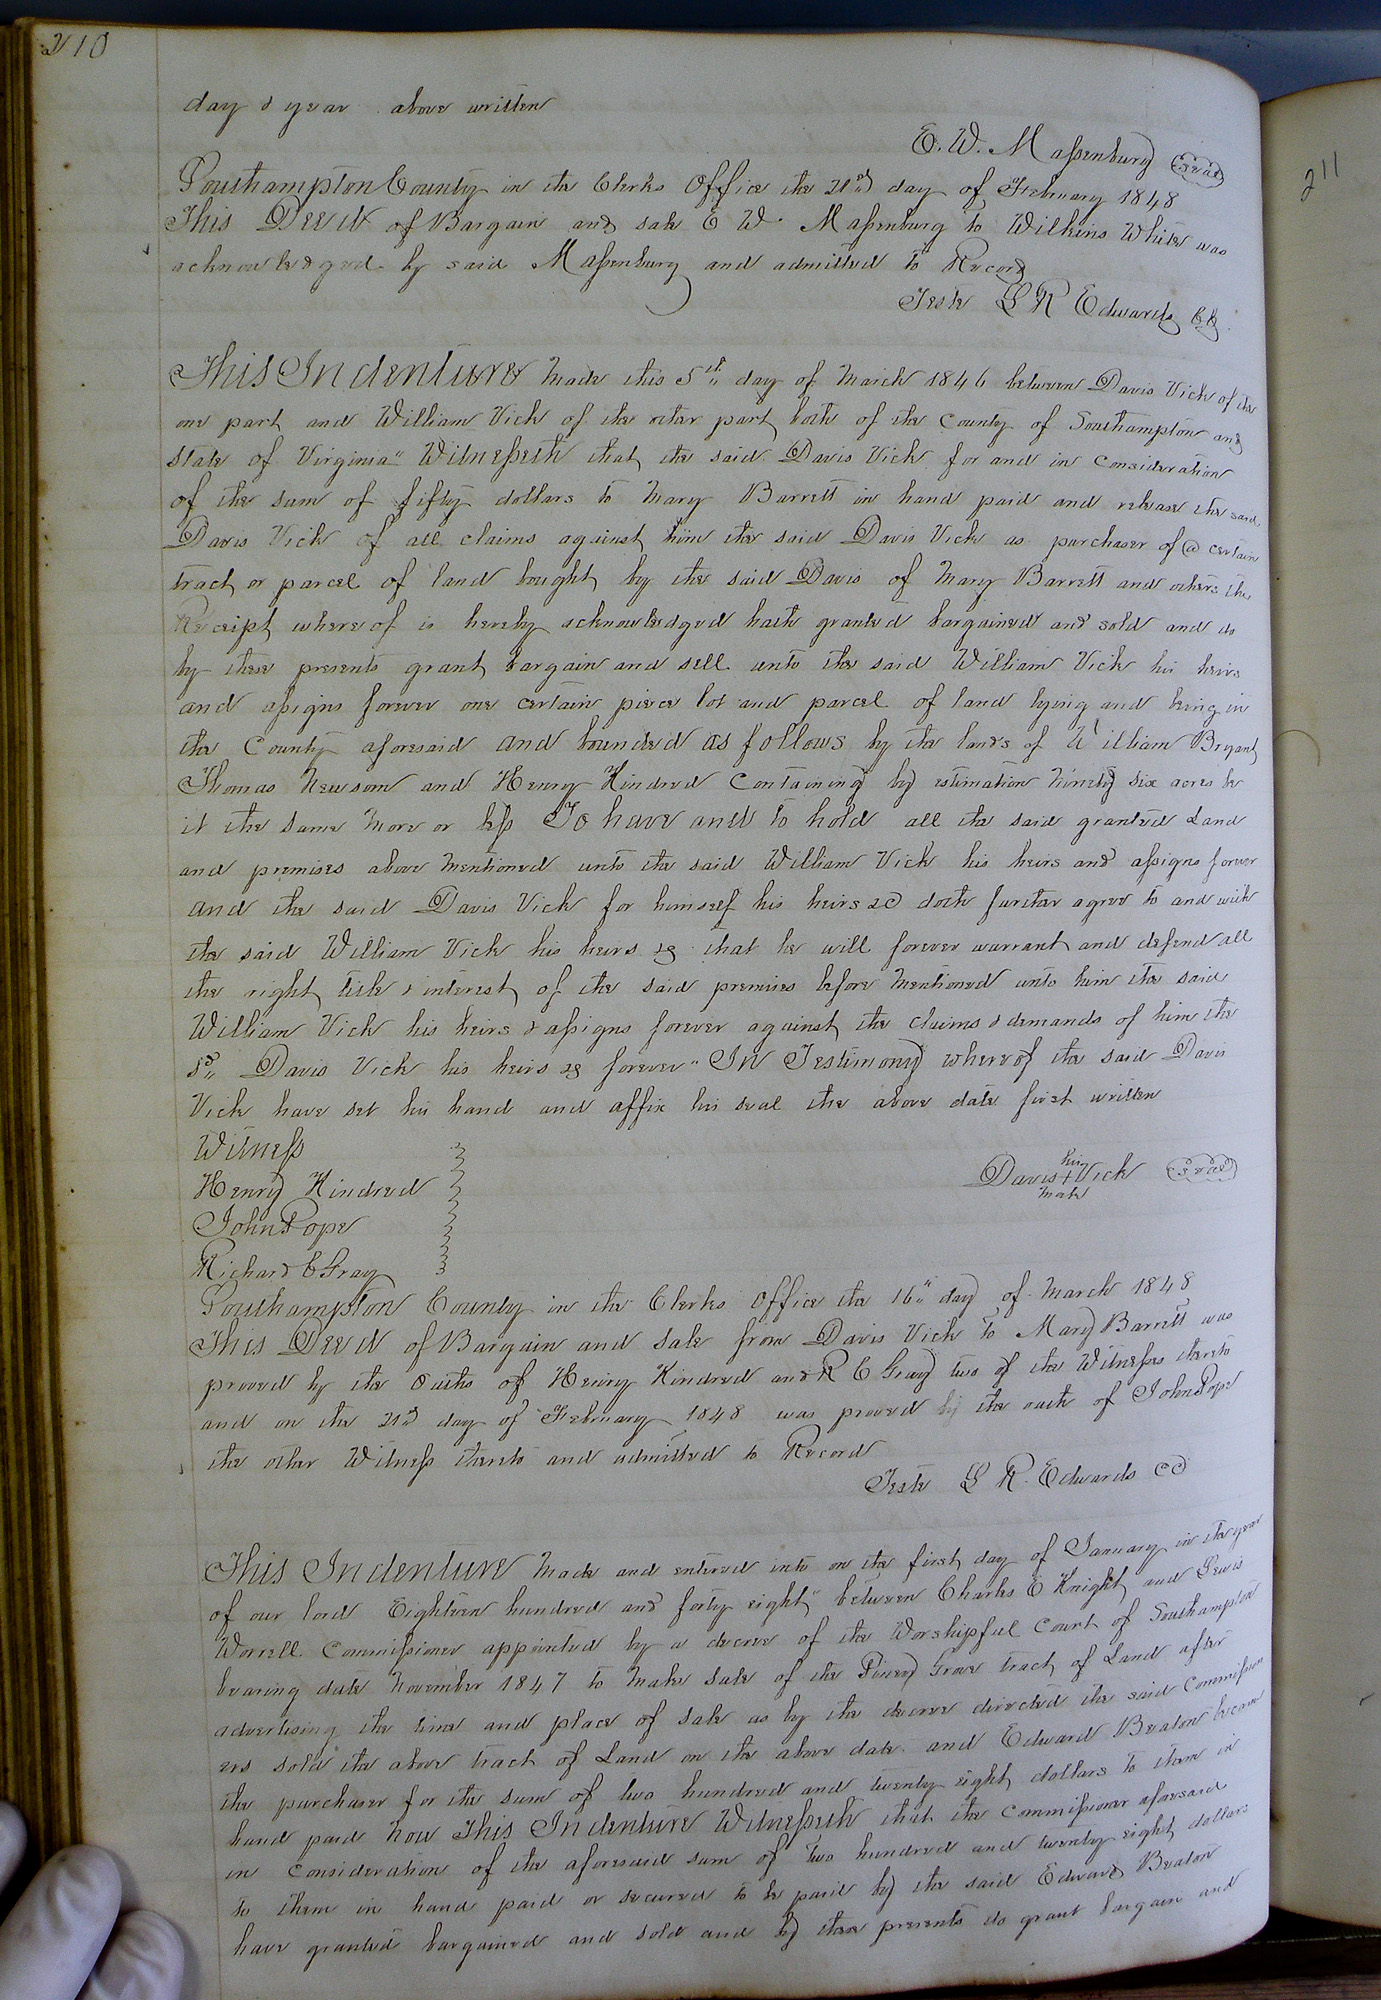 210
day & year above written
E. W. Massenburg (Seal)
Southampton County in the Clerks Office the 21st day of February 1848
This Deed of Bargain and sale E W Massenburg to Wilkins White was
acknowledged by said Massenburg and admitted to Record
Teste L R Edwards
This Indenture Made this 5th day of March 1846 between Davis Vick of the
one part and William Vick of the other part both of the County of Southampton and
State of Virginia" Witnesseth that the said Davis Vick for and in Consideration
of the sum of fifty dollars to Mary Barrett in hand paid and release the said
Davis Vick of all claims against him the said Davis Vick as purchaser of a certain
tract or parcel of land bought by the said Davis of Mary Barrett and others the
Receipt where of is hereby acknowledged hath granted bargained and sold and do
by these presents grant bargain and sell unto the said William Vick his heirs
and assigns forever one certain pierce lot and parcel of land lying and being in
the County aforesaid and bounded as follows by the lands of William Bryant
Thomas Newsom and Henry Kindred Containing by estimation Ninety six acres be
it the same more or less To have and to hold all the said granted Land
and premises above Mentioned unto the said William Vick his heirs and assigns forever
and the said Davis Vick for himself his heirs &c doth further agree to and with
the said William Vick his heirs &c that he will forever warrant and defend all
the right title & interest of the said premises before Mentioned unto him the said
William Vick his heirs & assigns forever against the claims & demands of him the
sd Davis Vick his heirs &c forever" In Testimony where of the said Davis
Vick have set his hand and affix his seal the above date first written
Witness
Henry Kindred
Davis his + mark Vick (Seal)
John Pope
Richard E Gray
Southampton County in the Clerks Office the 16" day of March 1848
This Deed of Bargain and Sale from Davis Vick to Mary Barrett was
proved by the Oaths of Henry Kindred and R E Gray two of the Witnesses thereto
and on the 21st day of February 1848 was proved by the oath of John Pope
the other Witness thereto and admitted to Record
Teste L R. Edwards CC
This Indenture Made and entered into on the first day of January in the year
of our lord Eighteen hundred and forty eight" between Charles E Knight and Lewis
Worrell Commissioner appointed by a decree of the Worshipful Court of Southampton
bearing date November 1847 to Make Sale of the Piney Grove tract of Land after
advertising the time and place of sale as by the decree directed the said Commission
ers sold the above tract of Land on the above date and Edward Beaton became
the purchaser for the sum of two hundred and twenty eight dollars to them in
hand paid Now This Indenture Witnesseth that the Commissioner aforesaid
in Consideration of the aforesaid sum of Two hundred and twenty eight dollars
to them in hand paid or secured to be paid by the said Edward Beaton
have granted bargained and sold and by these presents do grant bargain and
211